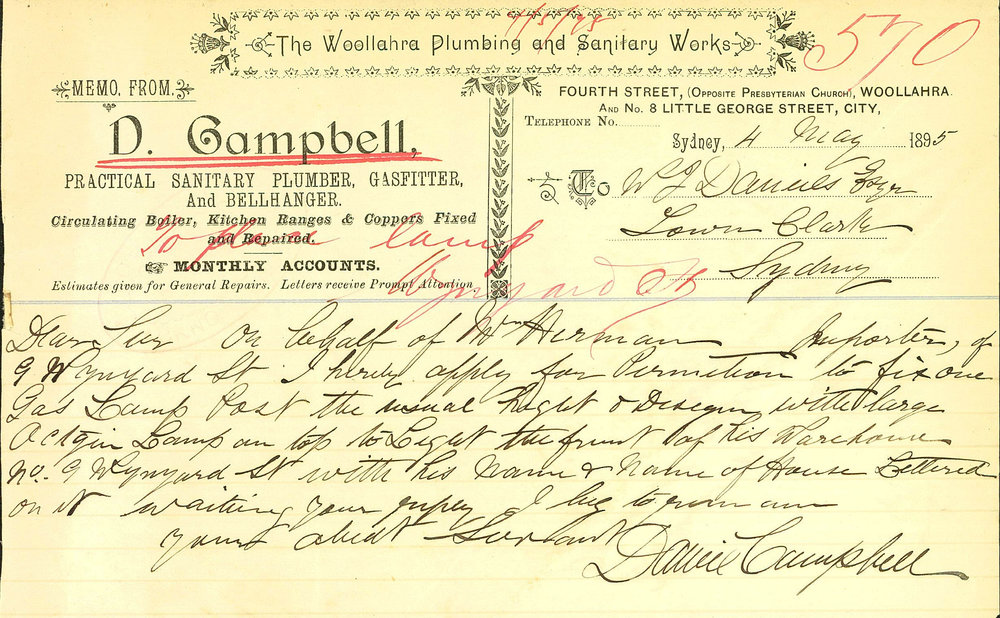 4/5/95
The Woollahra Plumbing and Sanitary Works
570
MEMO. FROM
D. Campbell,
PRACTICAL SANITARY PLUMBER, GASFITTER,
AND BELLHANGER.
Circulating Boiler, Kitchen Ranges & Coppers Fixed
and Repaired.
MONTHLY ACCOUNTS.
Estimates given for General Repairs. Letters receive Prompt Attention
FOURTH STREET, (OPPOSITE PRESBYTERIAN CHURCH), WOOLLAHRA.
AND NO. 8 LITTLE GEORGE STREET, CITY,
TELEPHONE NO.
Sydney, 4 May 1895
To W J Daniels Esqr
Town Clarke
Sydney
To place lamp
Wynyard St
Dear Sir On behalf of Mr Herman Inporter, of
9 Wynyard St I hereby apply for Permetion to fix one
Gas Lamp Post the usual hight & Disegn with large
Lamp on top to Light the front of his Warehouse
No. 9 Wynyard St with his Name & Name of House Lettered
on it waiting your reply I beg to remain
yours obedt Servant
David Campbell